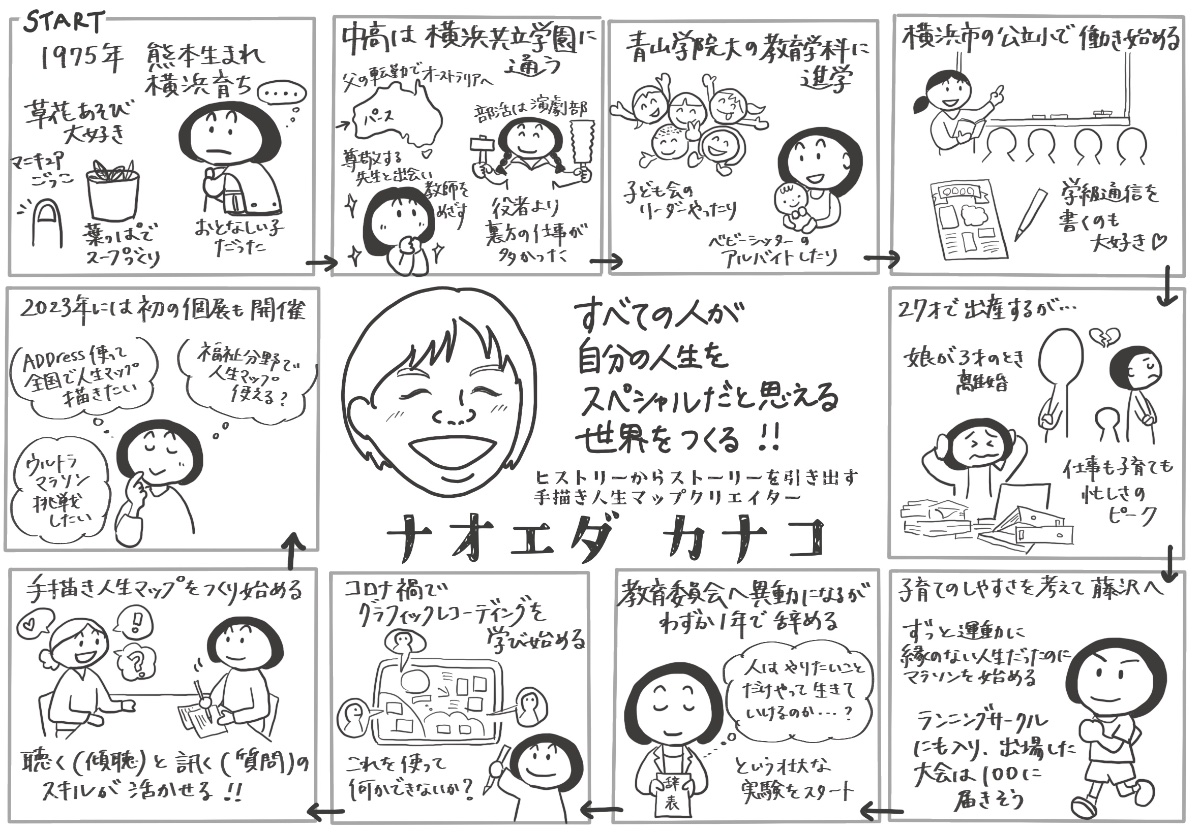 START
1975年 熊本生まれ
横浜育ち
草花あそび
大好き
マニキュア
ごっこ
葉っぱで
スープづくり
おとなしい子
だった
中高は横浜共立学園に
通う
父の転勤でオーストラリアへ
パース
部活は演劇部
尊敬する
先生と出会い
教師を
めざす
役者より
裏方の仕事が
多かった
青山学院大の教育学科に
進学
子ども会の
リーダーやったり
ベビーシッターの
アルバイトしたり
横浜市の公立小で働き始める
学級通信を
書くのも
大好き♡
27才で出産するが…
娘が3才のとき
離婚
仕事も子育ても
忙しさの
ピーク
子育てのしやすさを考えて藤沢へ
ずっと運動に
縁のない人生だったのに
マラソンを始める
ランニングサークル
にも入り、出場した
大会は100に
届きそう
教育委員会へ異動になるが
わずか1年で辞める
人はやりたいこと
だけやって生きて
いけるのか…?
辞表
という壮大な
実験をスタート
コロナ禍で
グラフィックレコーディングを
学び始める
これを使って
何かできないか?
手描き人生マップをつくり始める
!!
?
聴く(傾聴)と訊く(質問)の
スキルが活かせる!!
2023年には初の個展も開催
ADDress使って
全国で人生マップ
描きたい
福祉分野で
人生マップ
使える?
ウルトラ
マラソン
挑戦
したい
すべての人が
自分の人生を
スペシャルだと思える
世界をつくる!!
ヒストリーからストーリーを引き出す
手描き人生マップクリエイター
ナオエダ カナコ